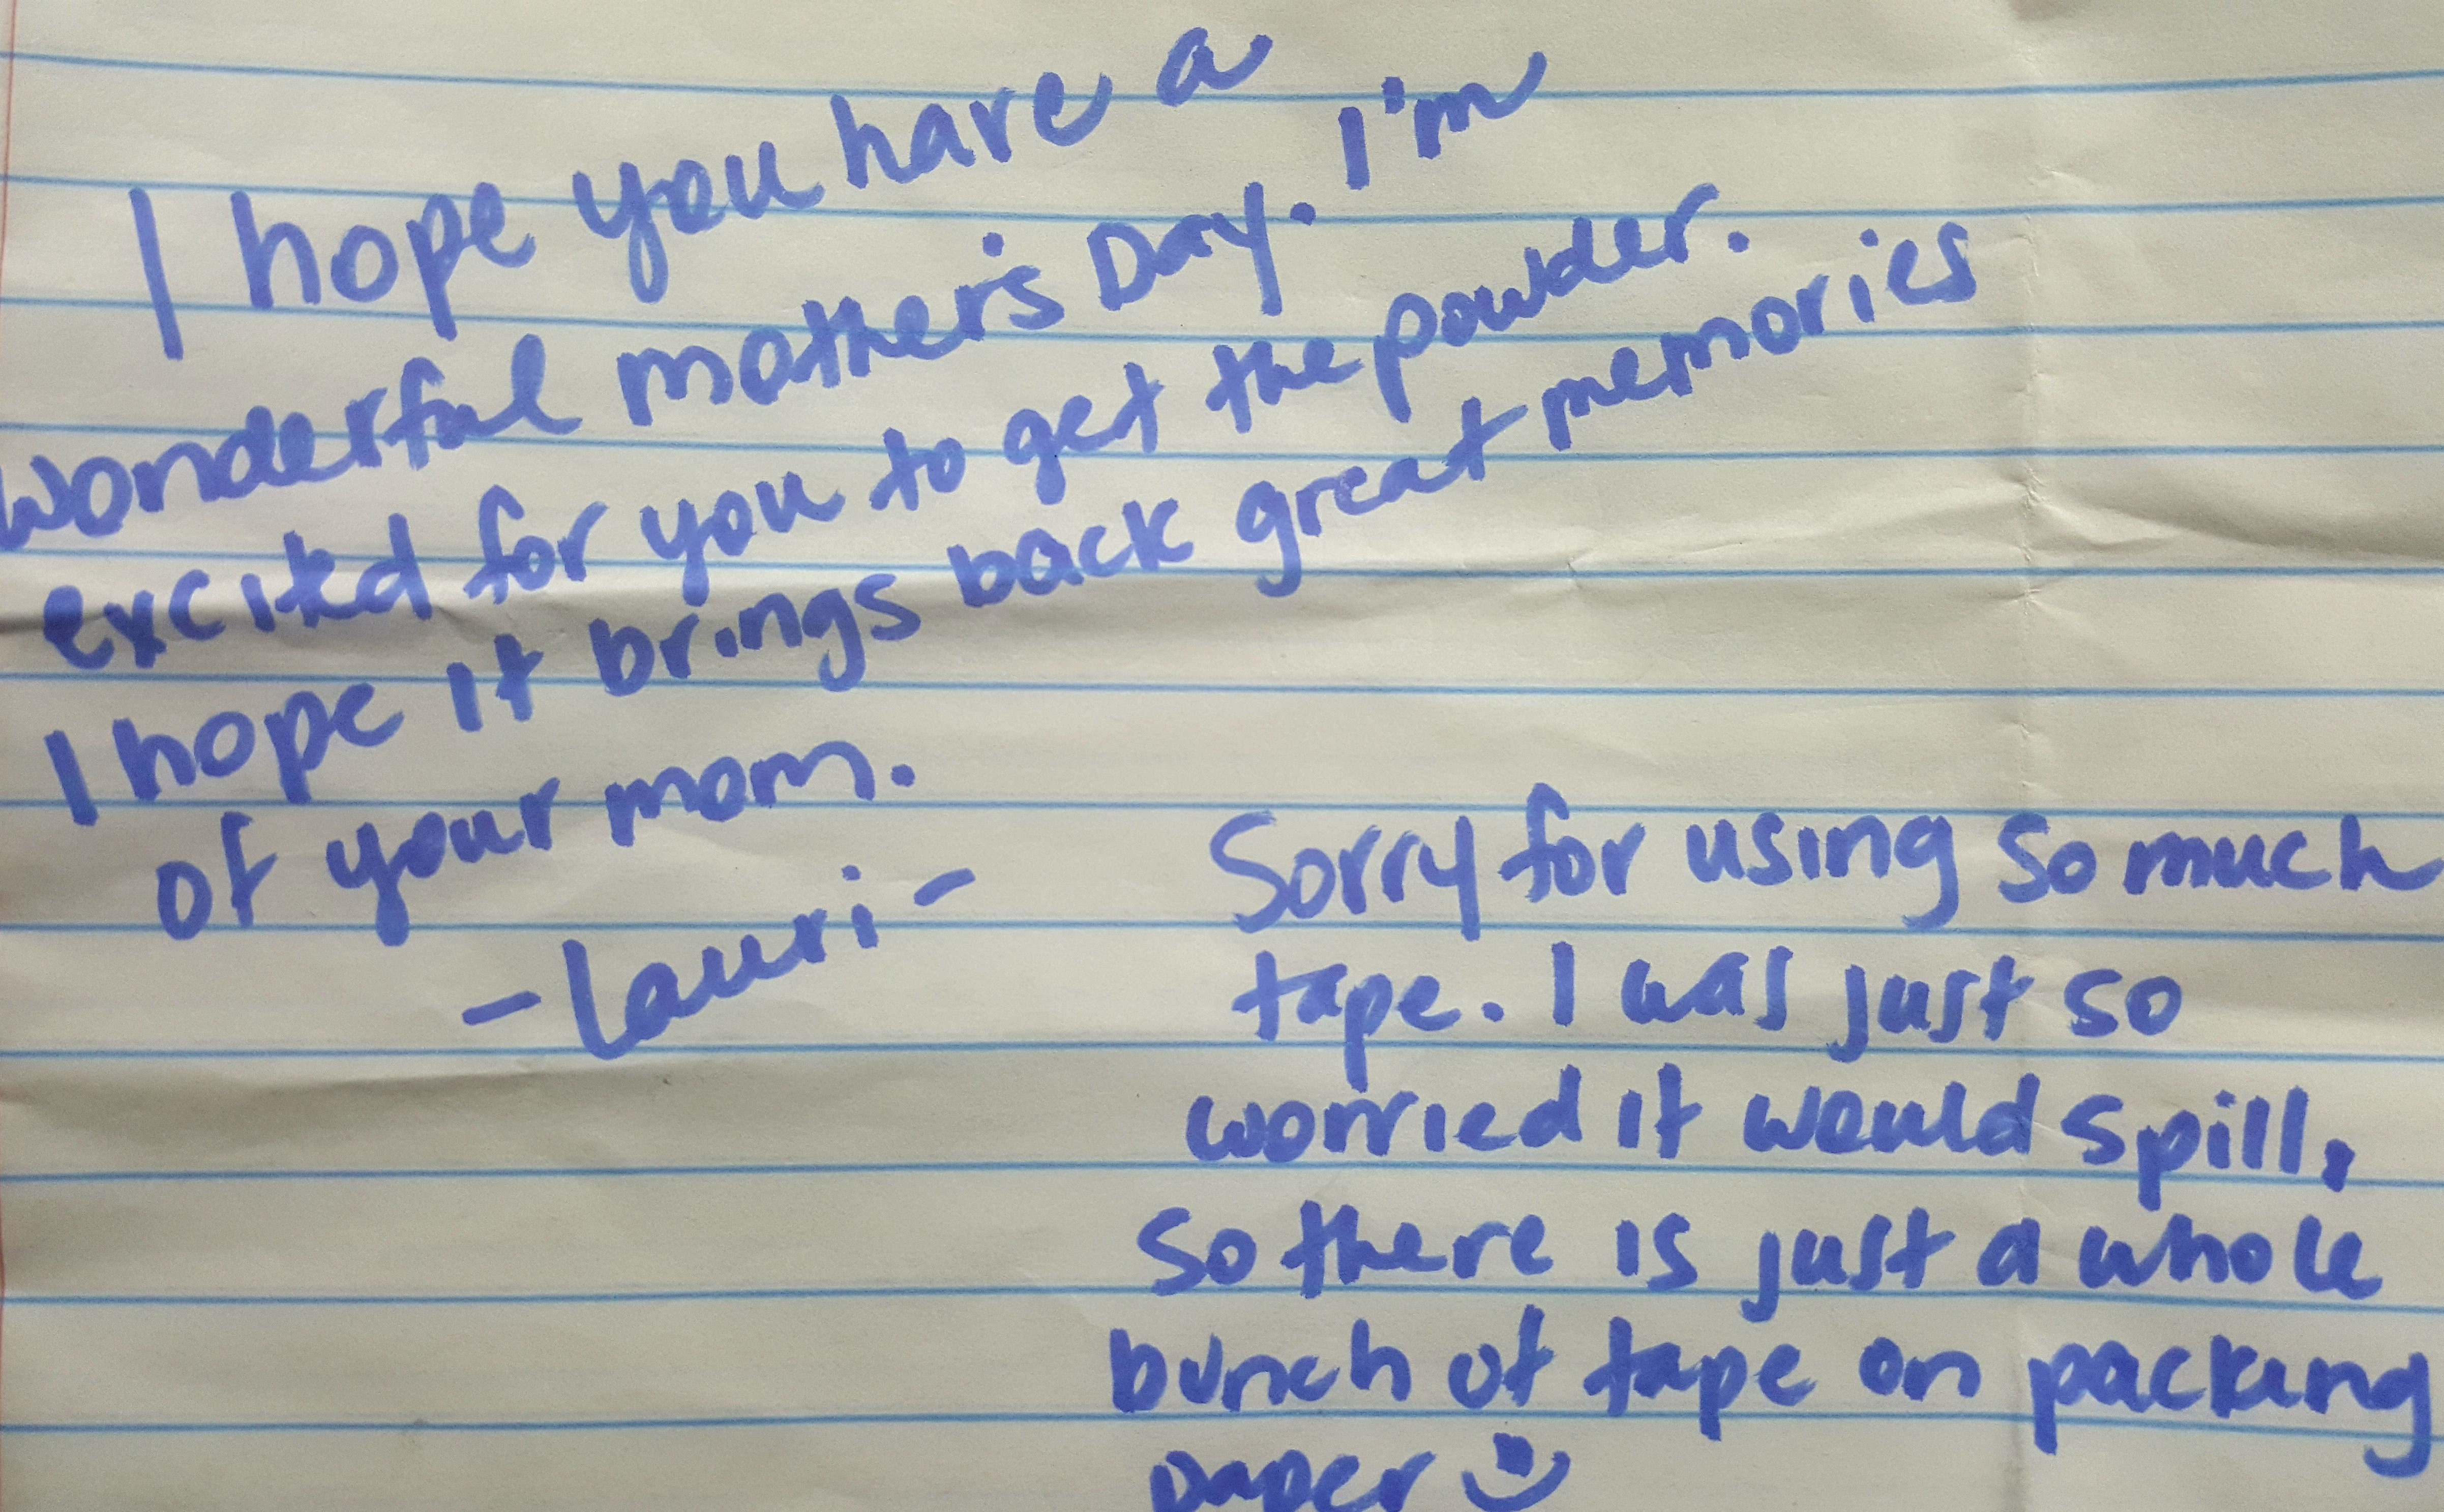 I hope you have a
wonderful mother's Day. I'm
excited for you to get the powder.
I hope it brings back great memories
of your mom.
-Lauri-
Sorry for using so much
tape. I was just so
worried it would spill,
so there is just a whole
bunch of tape on packing
paper